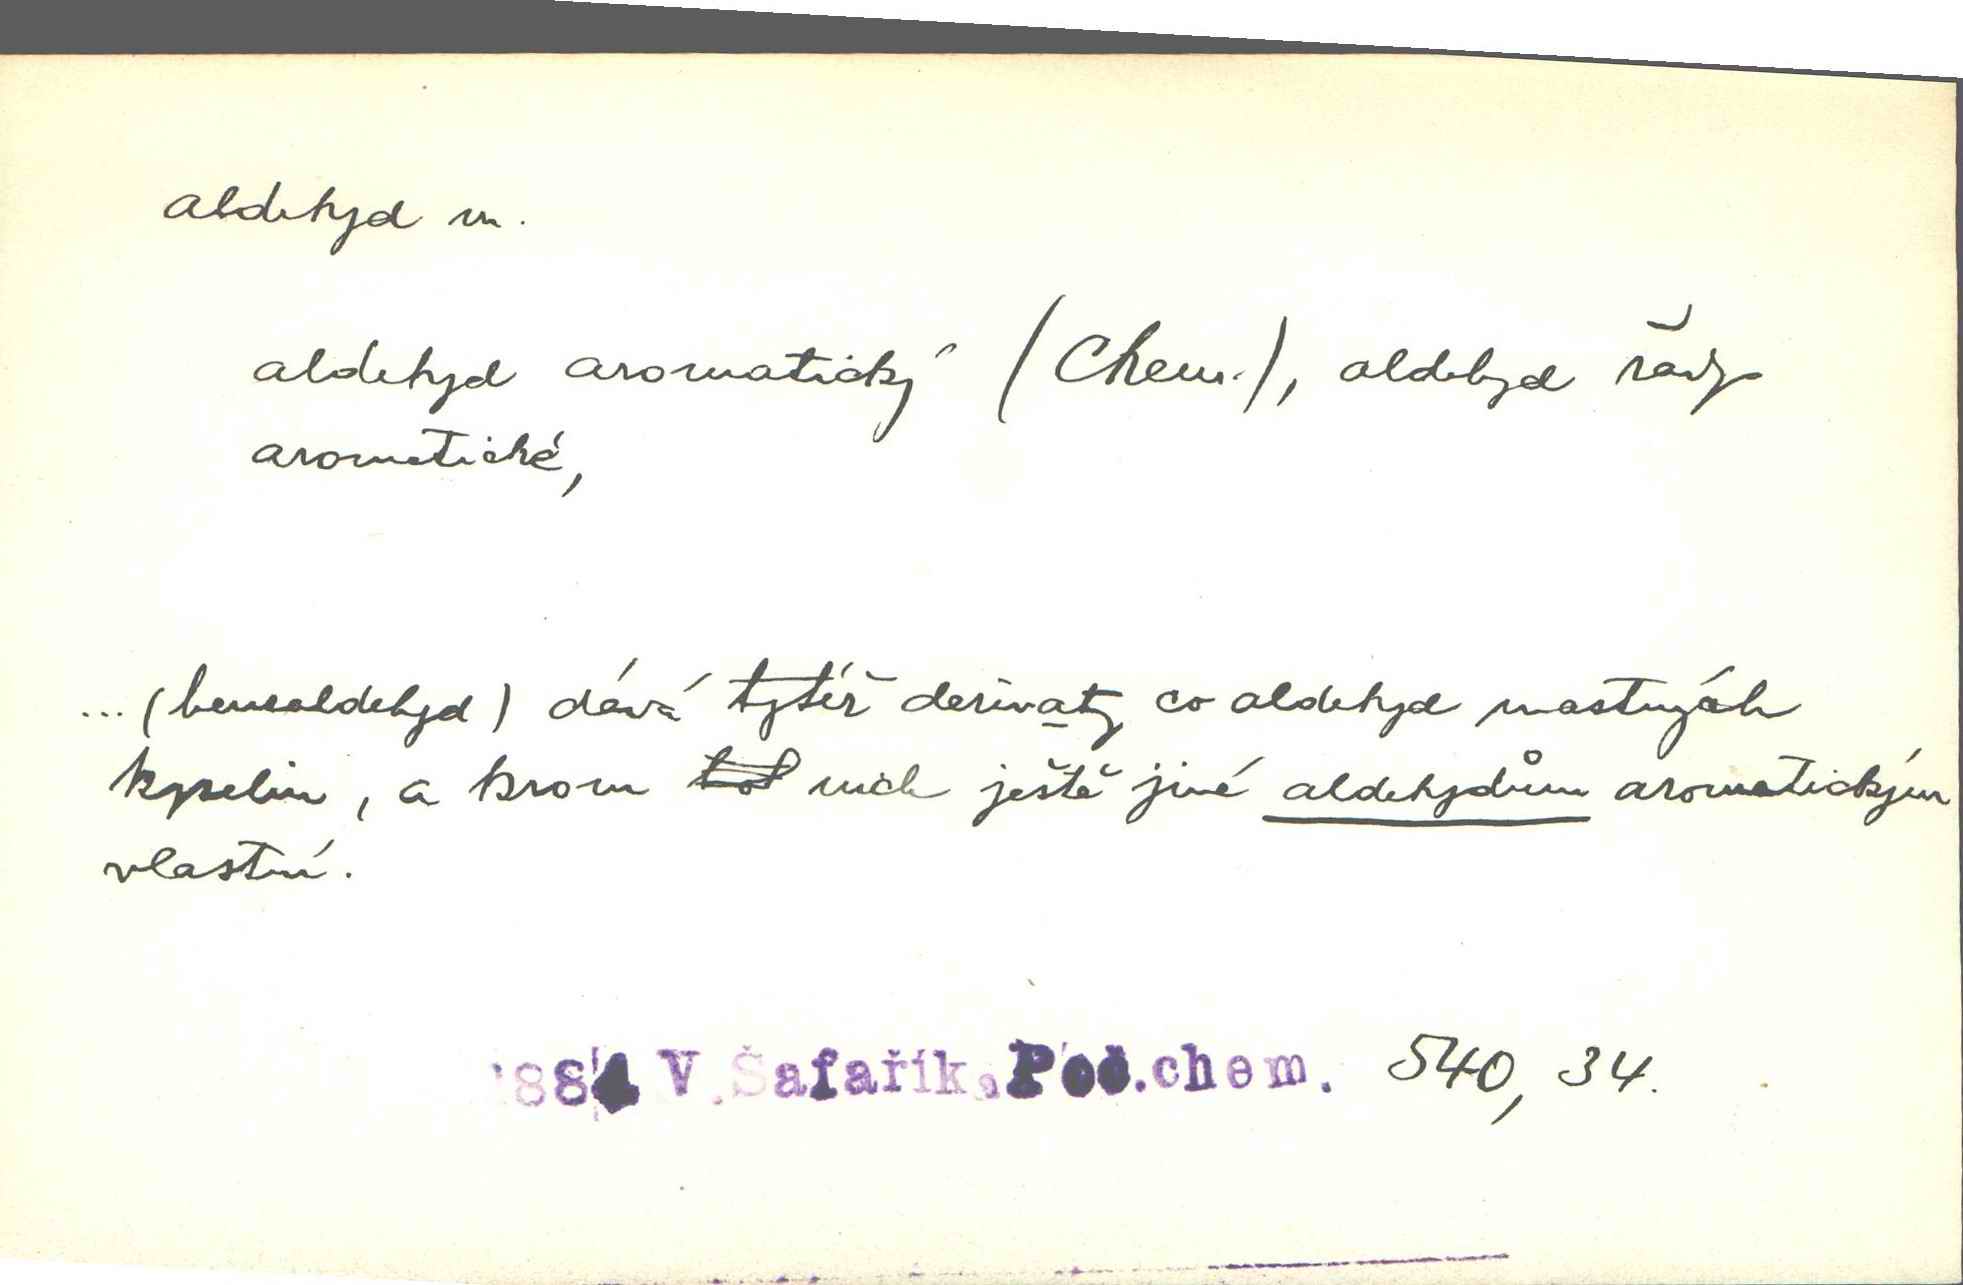 aldehyd m.
aldehyd aromatický (Chem.), aldehyd řady
aromatické,
... (bensaldehyd) dává tytéž derivaty co aldehyd mastných
kyselin, a krom nich ještě jiné aldehydům aromatickým
vlastní.
1884 V.Šafařík, Poč.chem. 540, 34.